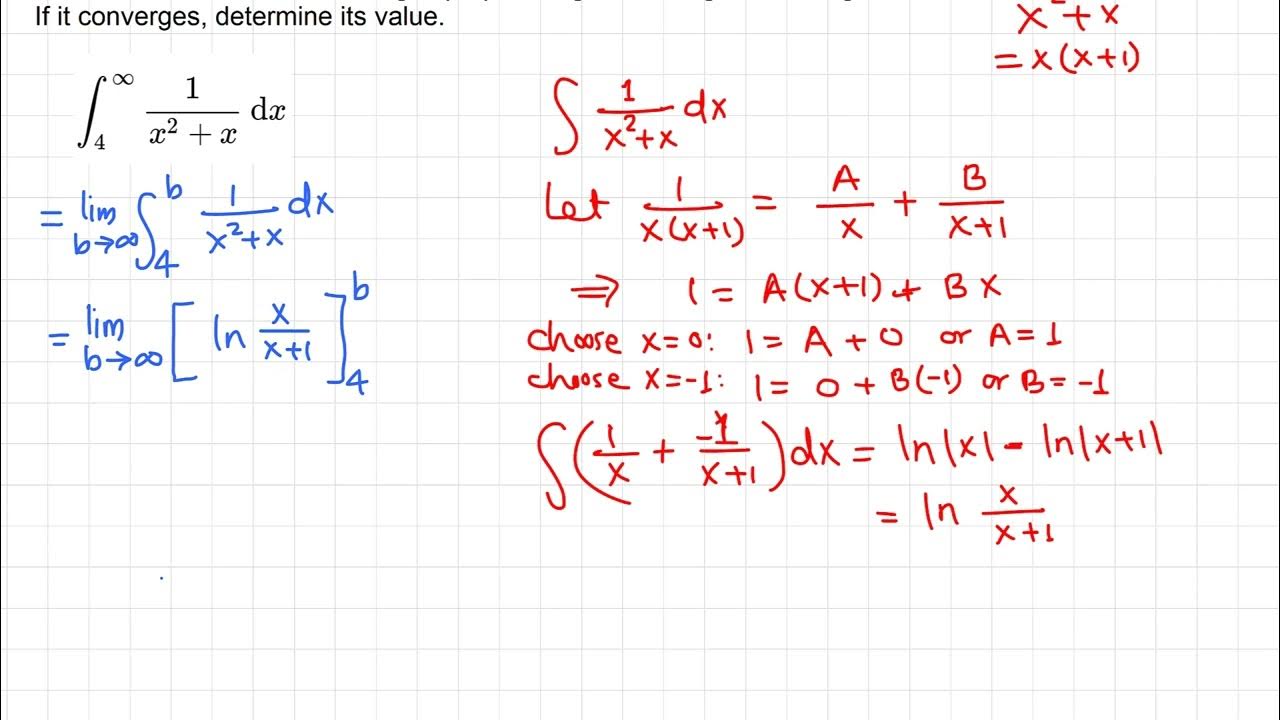 If it converges, determine its value.
∫_4^∞ 1/(x² + x) dx
= lim_{b→∞} ∫_4^b 1/(x²+x) dx
= lim_{b→∞} [ ln x/(x+1) ]_4^b
x²+x
= x(x+1)
∫ 1/(x²+x) dx
Let 1/(x(x+1)) = A/x + B/(x+1)
⇒ 1 = A(x+1) + Bx
choose x=0: 1 = A + 0 or A = 1
choose x=-1: 1 = 0 + B(-1) or B = -1
∫ (1/x + -1/(x+1)) dx = ln|x| - ln|x+1|
= ln x/(x+1)